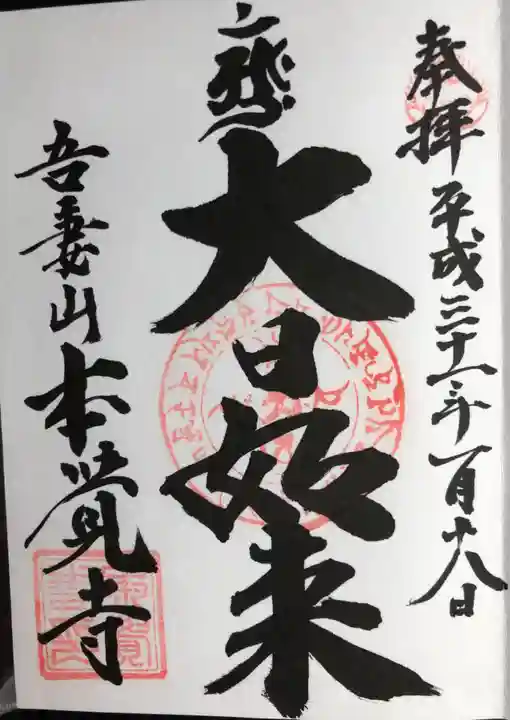 奉拝 平成三十一年一月十八日
大日如来
吾妻山本覺寺